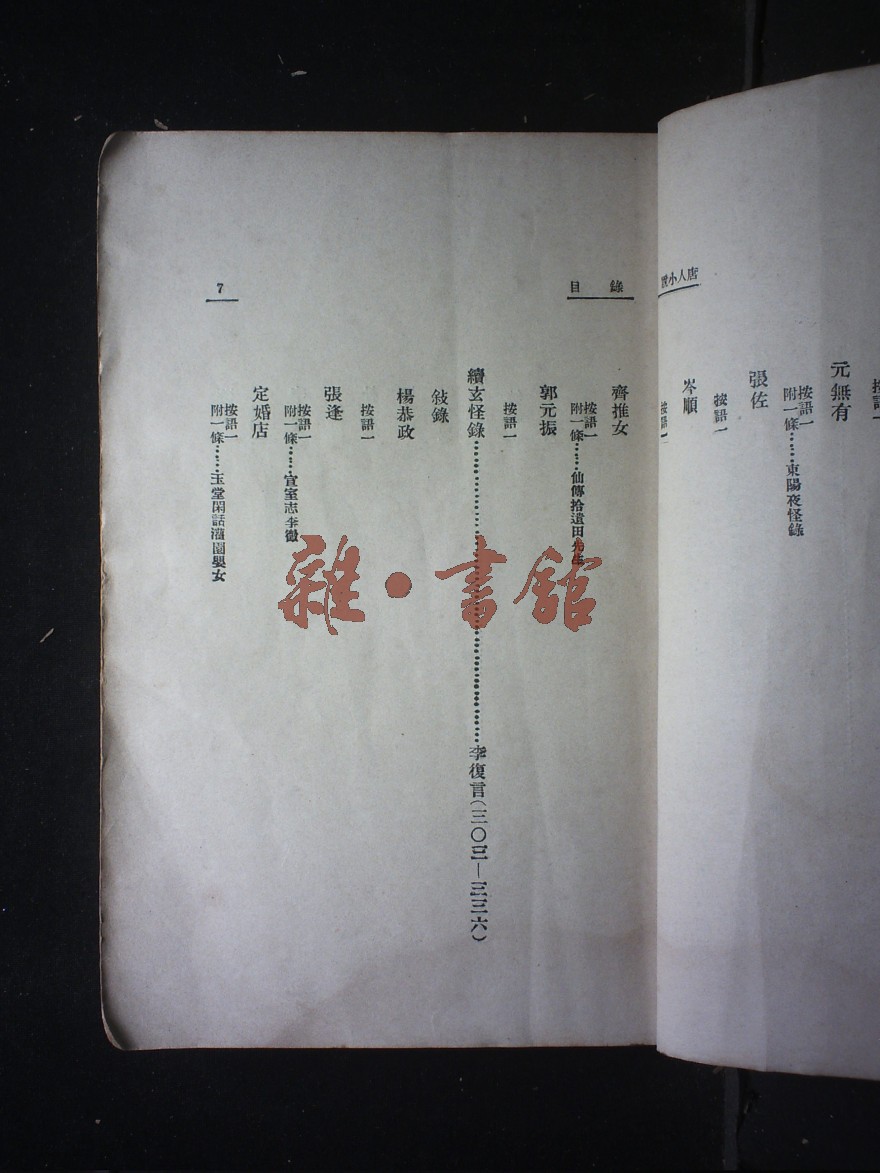 唐人小說
按語一
元無有
按語一
附一條……東陽夜怪錄
張佐
按語一
岑順
按語一
目錄
齊推女
按語一
附一條……仙傳拾遺田先生
郭元振
按語一
續玄怪錄……李復言(三〇三—三三六)
敍錄
楊恭政
按語一
張逢
按語一
附一條……宣室志李徵
定婚店
按語一
附一條……玉堂閑話灌園嬰女
7
雜·書館